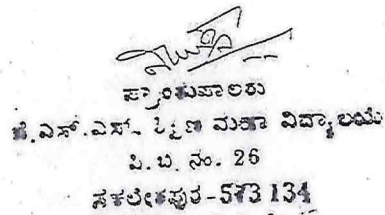 ಪ್ರಾಂಶುಪಾಲರು
ಜೆ.ಎಸ್.ಎಸ್. ಶಿಕ್ಷಣ ಮಹಾ ವಿದ್ಯಾಲಯ
ಪಿ.ಬಿ. ನಂ. 26
ಸಕಲೇಶಪುರ-573 134